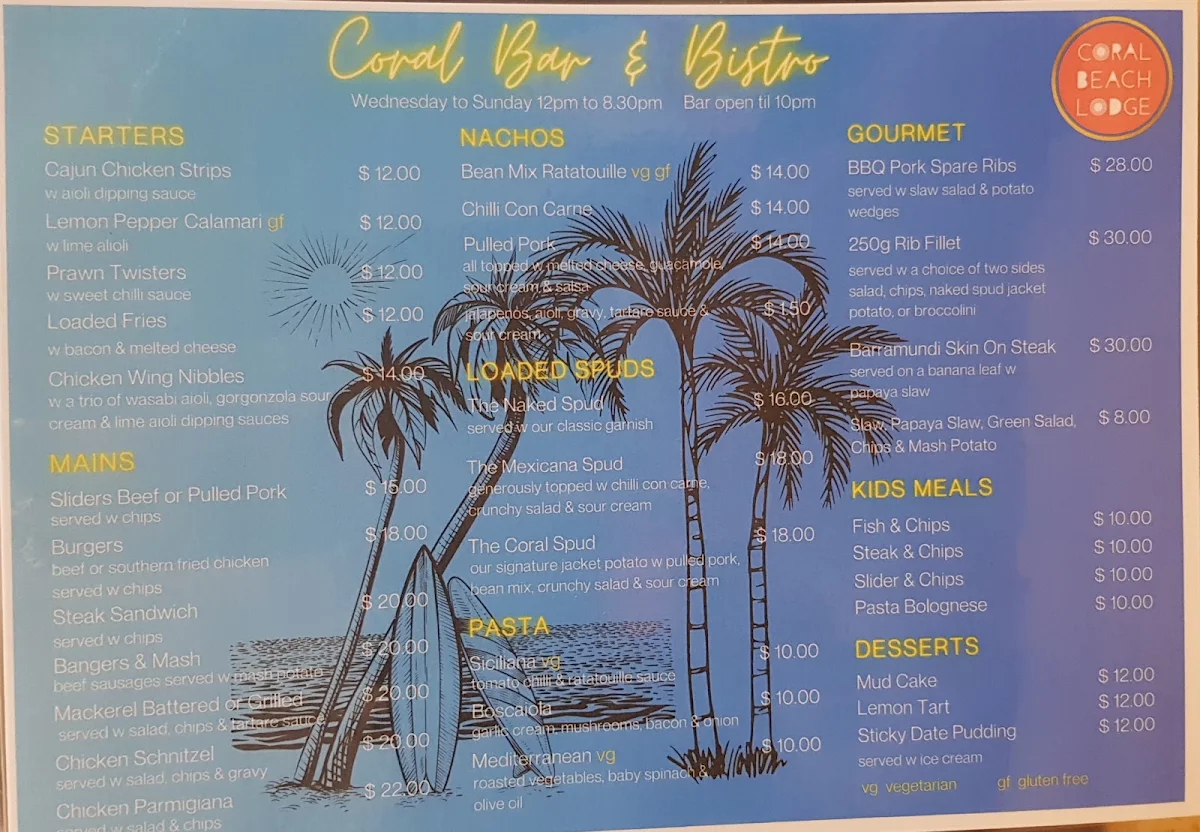 Coral Bar & Bistro
Wednesday to Sunday 12pm to 8.30pm Bar open til 10pm
CORAL
BEACH
LODGE
STARTERS
Cajun Chicken Strips $ 12.00
w aioli dipping sauce
Lemon Pepper Calamari gf $ 12.00
w lime alioli
Prawn Twisters $ 12.00
w sweet chilli sauce
Loaded Fries $ 12.00
w bacon & melted cheese
Chicken Wing Nibbles $ 14.00
w a trio of wasabi aioli, gorgonzola sour
cream & lime aioli dipping sauces
MAINS
Sliders Beef or Pulled Pork $ 15.00
served w chips
Burgers $ 18.00
beef or southern fried chicken
served w chips
Steak Sandwich $ 20.00
served w chips
Bangers & Mash $ 20.00
beef sausages served w mash potato
Mackerel Battered or Grilled $ 20.00
served w salad, chips & tartare sauce
Chicken Schnitzel $ 20.00
served w salad, chips & gravy
Chicken Parmigiana $ 22.00
served w salad & chips
NACHOS
Bean Mix Ratatouille vg gf $ 14.00
Chilli Con Carne $ 14.00
Pulled Pork $ 14.00
all topped w melted cheese, guacamole,
sour cream & salsa
jalapenos, aioli, gravy, tartare sauce & $ 1.50
sour cream
LOADED SPUDS
The Naked Spud $ 16.00
served w our classic garnish
The Mexicana Spud $ 18.00
generously topped w chilli con carne,
crunchy salad & sour cream
The Coral Spud $ 18.00
our signature jacket potato w pulled pork,
bean mix, crunchy salad & sour cream
PASTA
Siciliana vg $ 10.00
tomato chilli & ratatouille sauce
Boscaiola $ 10.00
garlic cream, mushrooms, bacon & onion
Mediterranean vg $ 10.00
roasted vegetables, baby spinach &
olive oil
GOURMET
BBQ Pork Spare Ribs $ 28.00
served w slaw salad & potato
wedges
250g Rib Fillet $ 30.00
served w a choice of two sides
salad, chips, naked spud jacket
potato, or broccolini
Barramundi Skin On Steak $ 30.00
served on a banana leaf w
papaya slaw
Slaw, Papaya Slaw, Green Salad, $ 8.00
Chips & Mash Potato
KIDS MEALS
Fish & Chips $ 10.00
Steak & Chips $ 10.00
Slider & Chips $ 10.00
Pasta Bolognese $ 10.00
DESSERTS
Mud Cake $ 12.00
Lemon Tart $ 12.00
Sticky Date Pudding $ 12.00
served w ice cream
vg vegetarian gf gluten free